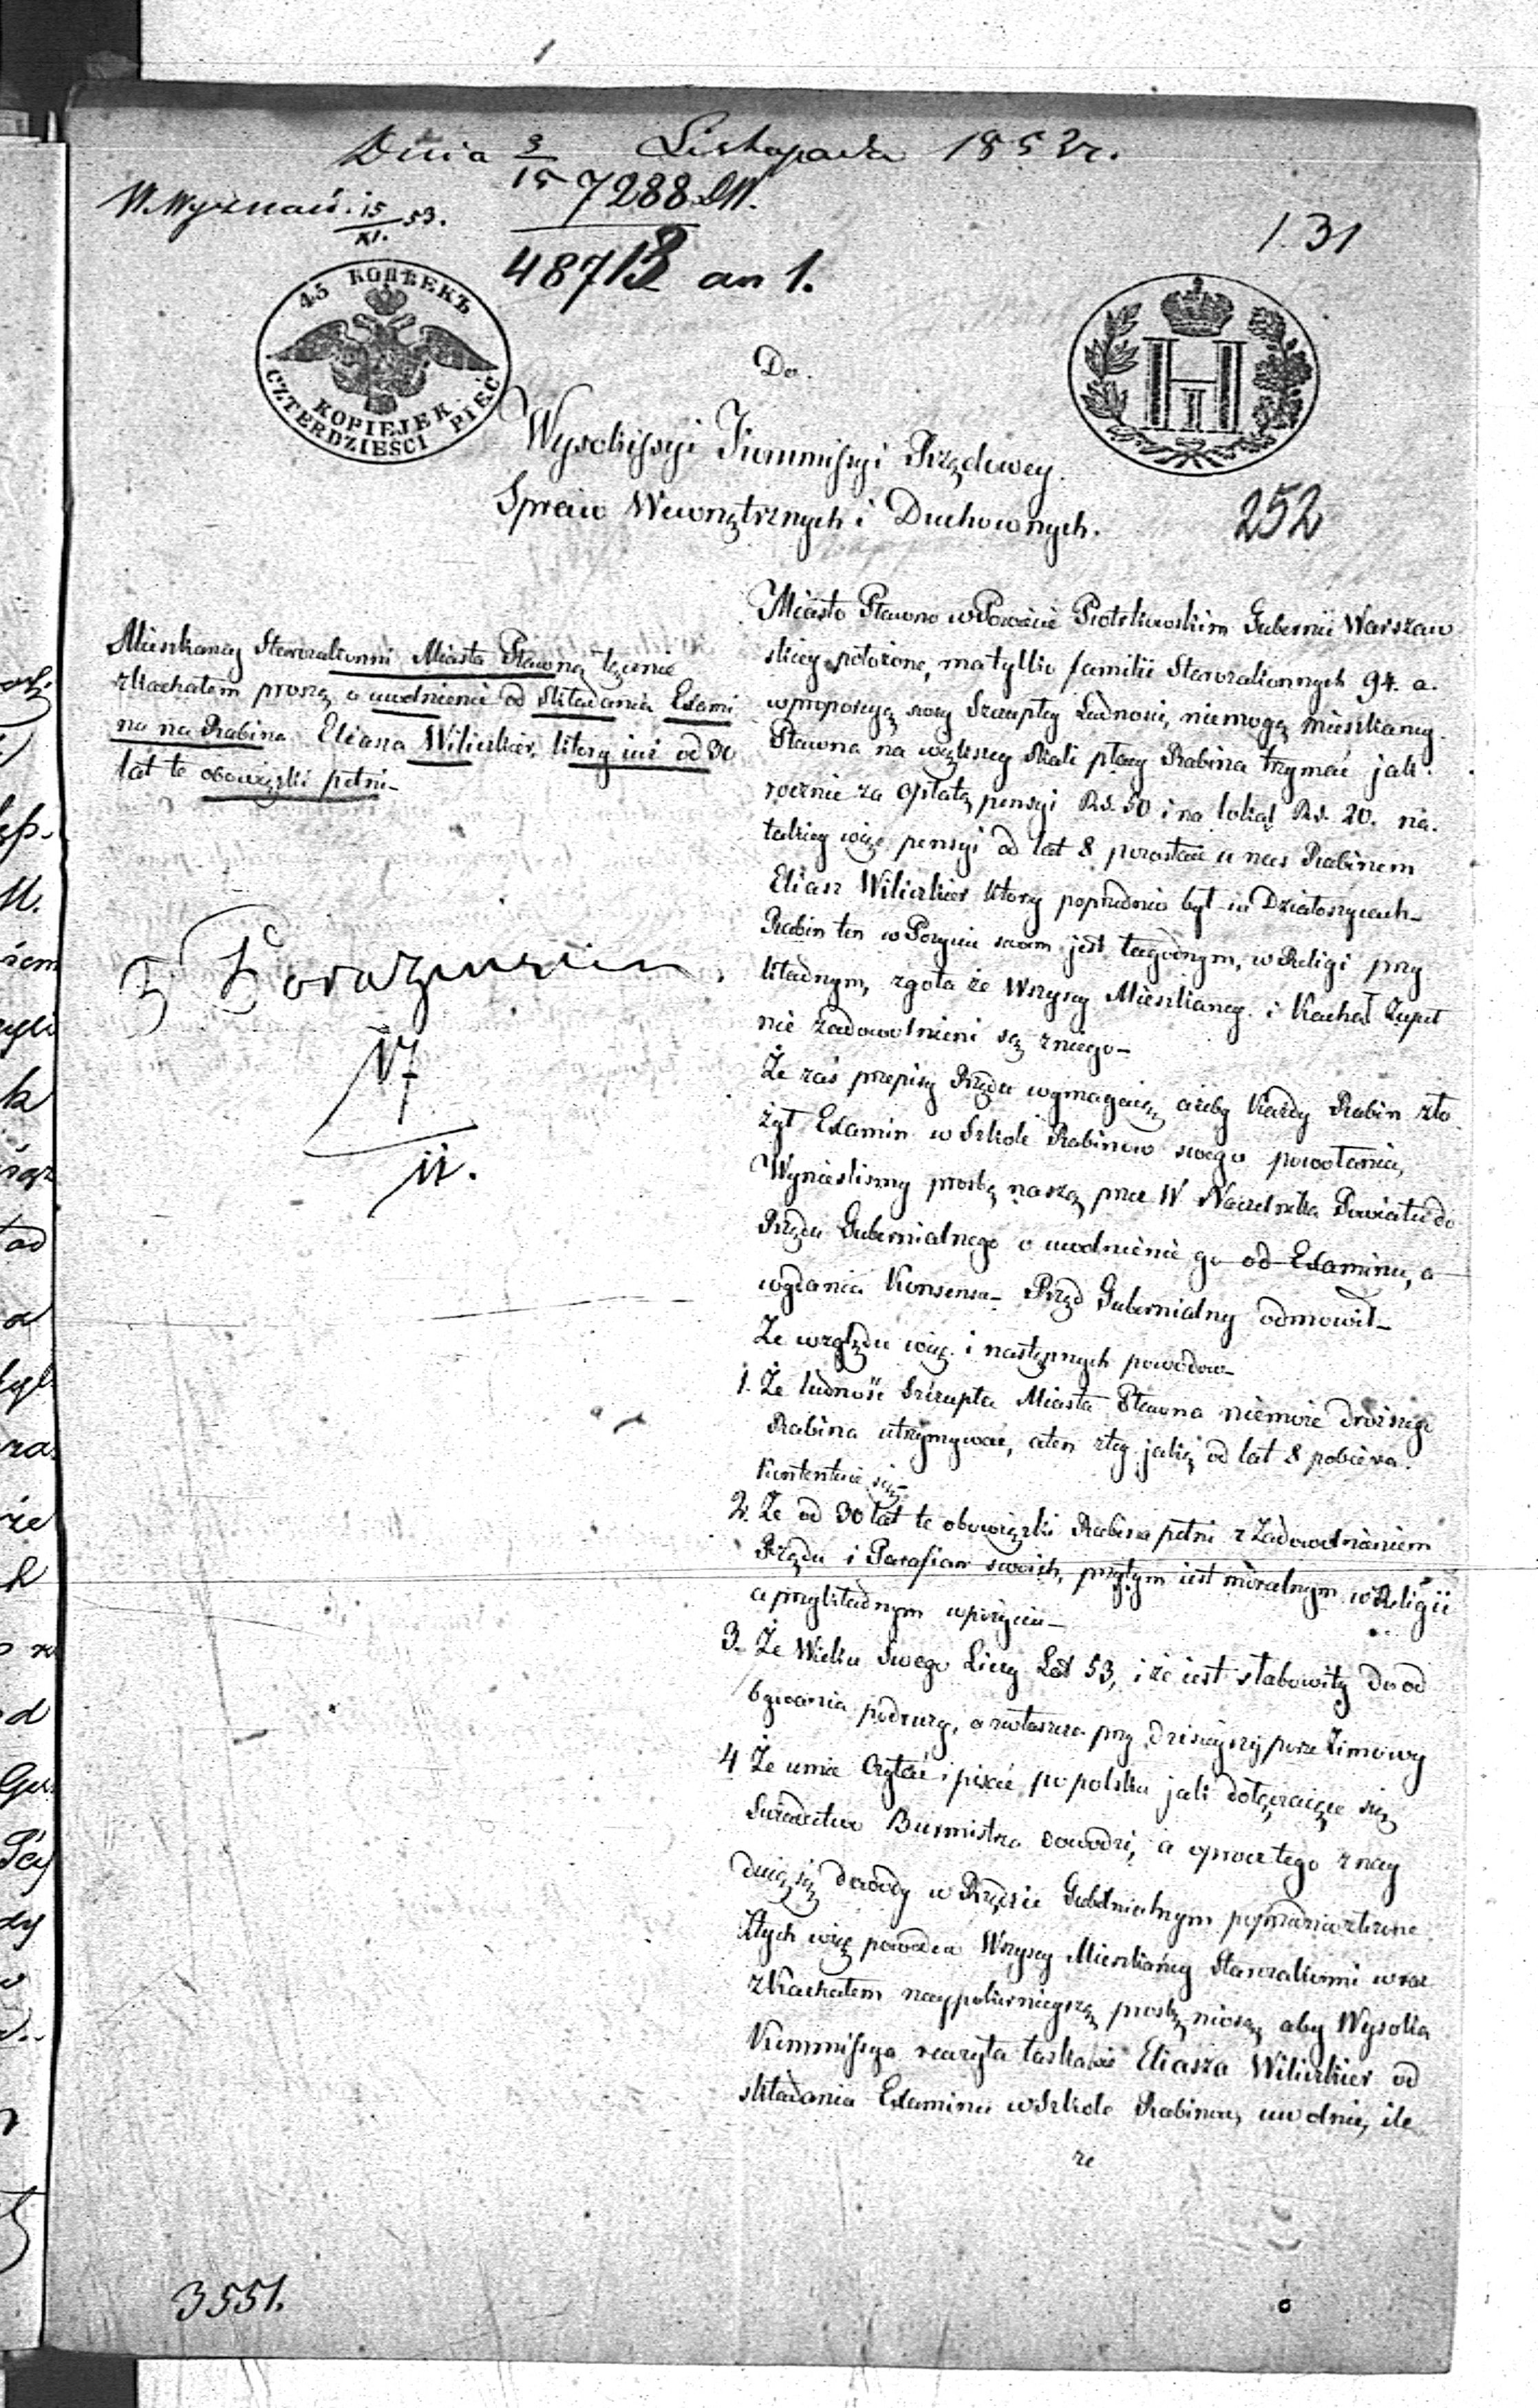 Dnia 3/15 Listopada 1853 r.
W. Wyznań. 15/XI. 53.
7288 DW.
48713 an 1.
131
45 КОПѢЕКЪ
KOPIEJEK
CZTERDZIEŚCI PIĘĆ
Н I
Do.
Wysokissyi Kommissyi Rządowey.
Spraw Wewnętrznych i Duchownych.
252
Mieszkancy Starozakonni Miasta Pławna łącznie
zKachałem proszą o uwolnienie od składania Exami
nu na Rabina Eliasza Wiliczkier, ktory iuż od 30
lat te obowiązki pełni_
17
11.
Miasto Pławno w Powiecie Piotrkowskim Gubernii Warszaw
skiey położone, ma tylko familii Starozakonnych 94. a.
w proporcyą swey Szczupłey Ludnosci, niemogą mieszkancy
Pławna na większey skali płacy Rabina trzymać jak.
rocznie za opłatą pensyi R.s. 50 i na lokal R.s. 20. na.
takiey więc pensyi od lat 8 pozostaie u nas Rabinem
Eliasz Wiliczkier ktory poprzednio był w Działoszycach_
Rabin ten w Pożyciu swem jest łagodnym, w Religi przy
kładnym, zgoła że Wszyscy Mieszkancy i Kachał Zupeł
nie zadowolnieni są zniego_
Że zaś przepisy Rządu wymagaią ażeby każdy Rabin zło
żył Examin w Szkole Rabinow swego powołania,
Wynieslismy prosbę naszą przez W Naczelnika Powiatu do
Rządu Gubernialnego o uwolnienie go od Examinu, a
wydania Konsensu_ Rząd Gubernialny odmowił_
Ze względu więc i następnych powodow_
1. Że ludność Szczupła Miasta Pławna niemoże droższego
Rabina utrzymywać, aten ztey jaką od lat 8 pobiera.
kontentuie się
2. Że od 30 lat te obowiązki Rabina pełni z Zadowolnieniem
Rządu i Parafian swoich, przytym iest moralnym w Religii
a przykładnym w pożyciu_
3. Że Wieku Swego Liczy Lat 53, i że iest słabowity do od
bywania podruży, a zwłaszcza przy dzisieyszy porze Zimowy
4 Że umie Czytać i pisać po polsku jak dołączaiące się
Swiadectwo Burmistrza dowodzi, a oprocz tego znay
duią się dowody w Rządzie Gubernialnym poprzednio złożone
Ztych więc powodow Wszyscy Mieszkańcy Starozakonni wraz
z Kachałem naypokorniejszą prosbę niosą aby Wysoka
Kommissya raczyła łaskawie Eliasza Wiliczkier od
składania Examinu w Szkole Rabinow, uwolnić, ile
ze
3551.